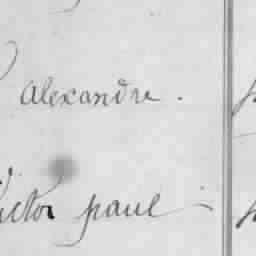 alexandre.
Victor paul